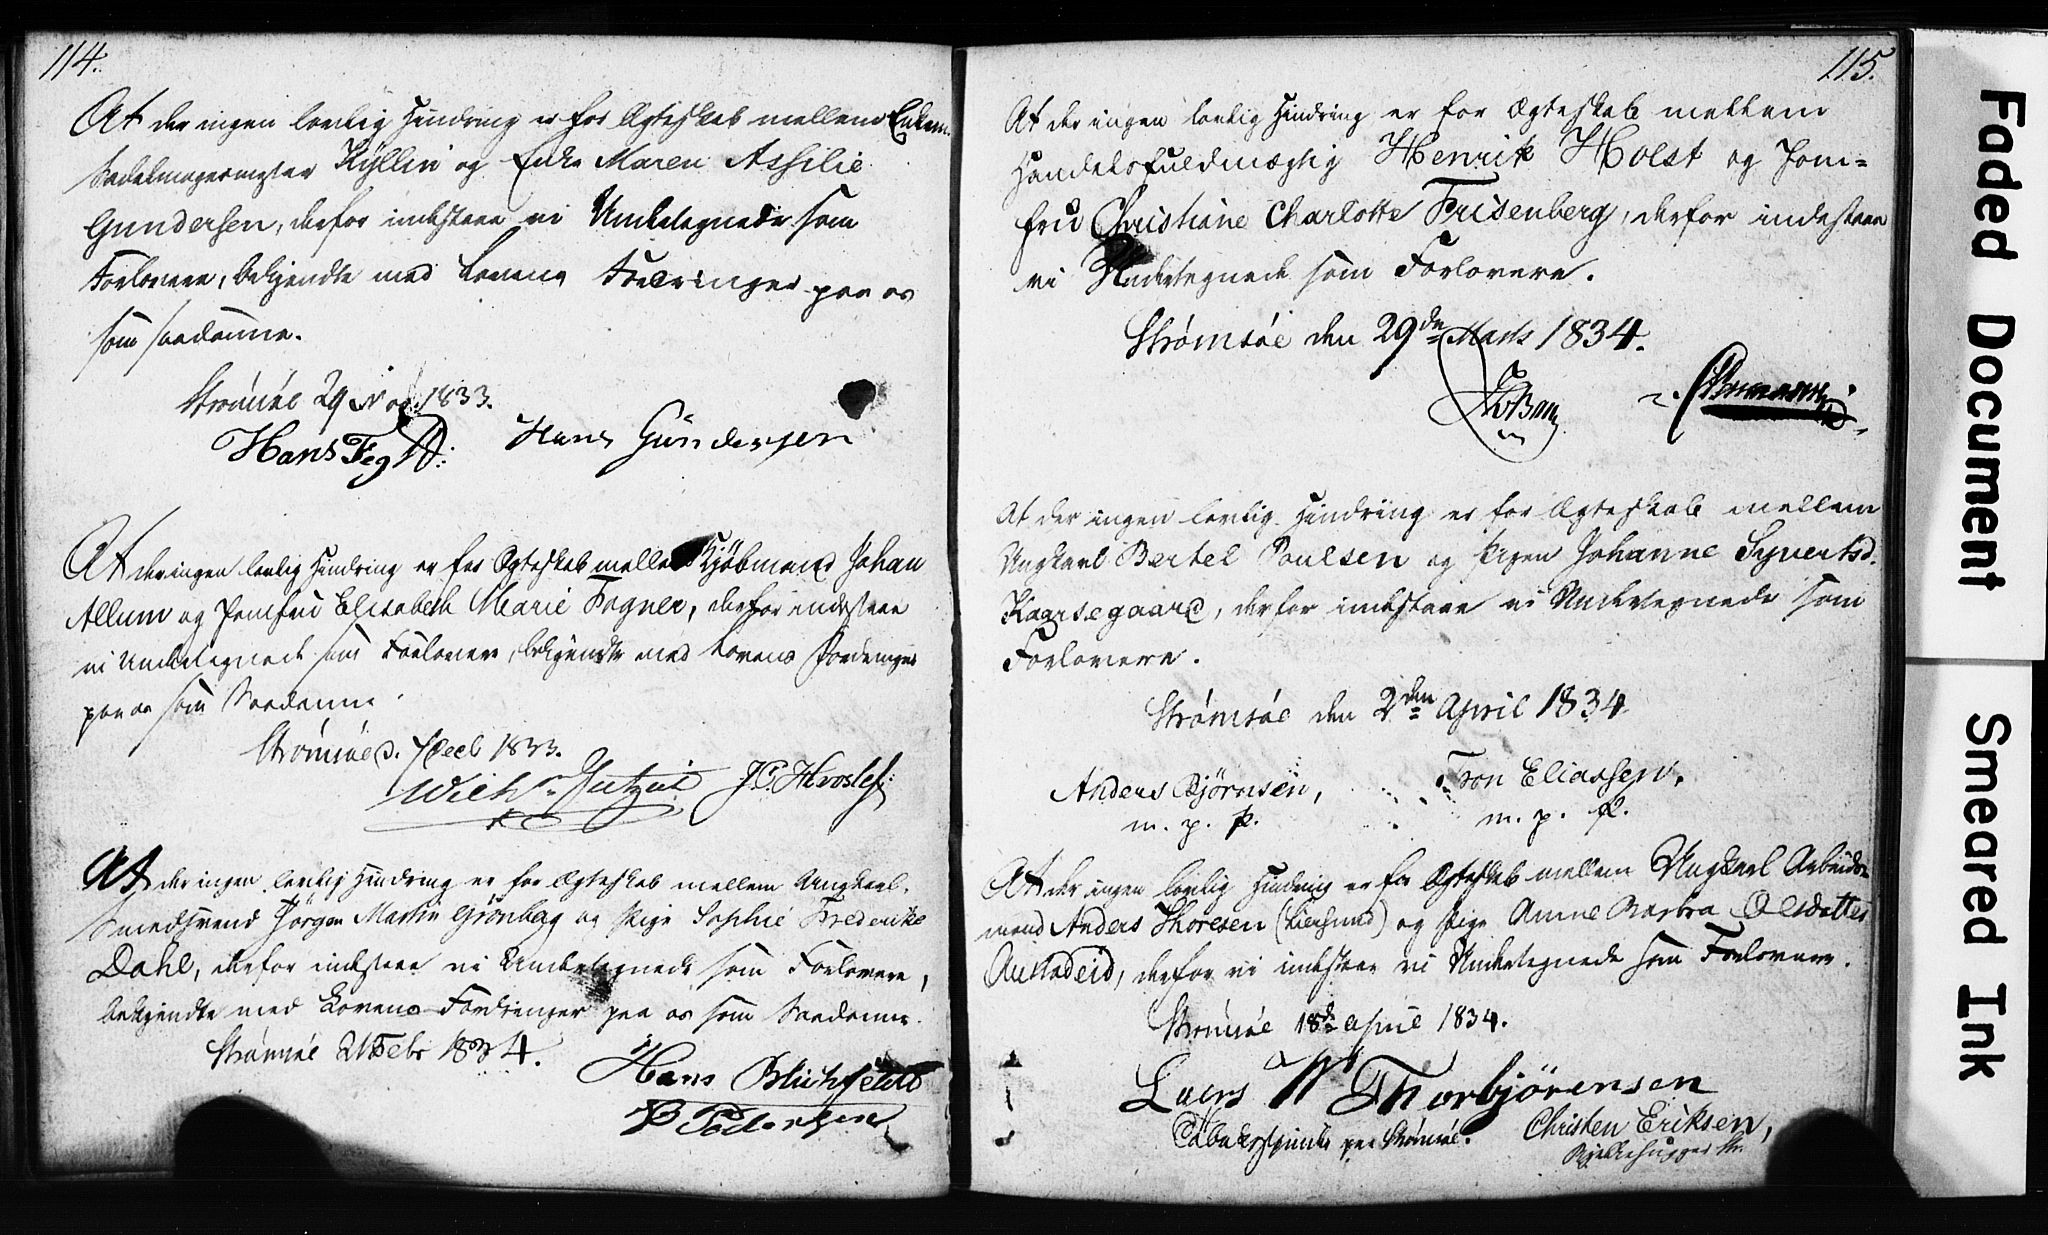 114.
At der ingen lovlig Hindring er for Ægteskab mellem Enkem.
Sadelmagermester Kyllin og Enke Maren Assilie
Gundersen, derfor indestaae vi Undertegnede som
Forlovere, bekjendte med Lovens Fordringer paa os
som saadanne.
Strømsöe 29 Nov. 1833.
Hans Hans Gundersen
At der ingen lovlig Hindring er for Ægteskab mellem Kjöbmand Johan
Allum og Jomfru Elisabeth Marie Fogner, derfor indestaae
vi Undertegnede som Forlovere, bekjendte med Lovens Fordringer
paa os som Saadanne.
Strømsöe d. 7 Decb 1833.
Wilh. J.C. Hvoslef
At der ingen lovlig Hindring er for Ægteskab mellem Ungkarl
Smedsvend Jörgen Martin Grönbag og Pige Sophie Frederikke
Dahl, derfor indestaae vi Undertegnede som Forlovere,
bekjendte med Lovens Fordringer paa os som Saadanne.
Strømsöe 21 Febr 1834.
Hans Blichfeldt
P Pedersen
115.
At der ingen lovlig Hindring er for Ægteskab mellem
Handelsfuldmægtig Henrik Holst og Jom-
fru Christiane Charlotte Frisenberg, derfor indestaae
vi Undertegnede som Forlovere.
Strømsöe den 29de Marts 1834.
At der ingen lovlig Hindring er for Ægteskab mellem
Ungkarl Bertel Poulsen og Pigen Johanne Syvertsd.
Kaarsegaard, derfor indestaae vi Undertegnede som
Forlovere.
Strømsöe den 2den April 1834
Anders Bjørnsen, Tron Eliassen,
m. p. p. m. p. p.
At der ingen lovlig Hindring er for Ægteskab mellem Ungkarl Arbeids-
mand Anders Thoresen (Liersund) og Pige Anne Barbra Olsdatter
Austadeid, derfor vi indestaae vi Undertegnede som Forlovere.
Strømsöe 18de April 1834.
Laers W Thorbjörensen
Tobakspinder paa Strømsöe. Christen Eriksen,
Bjelkehugger Str.